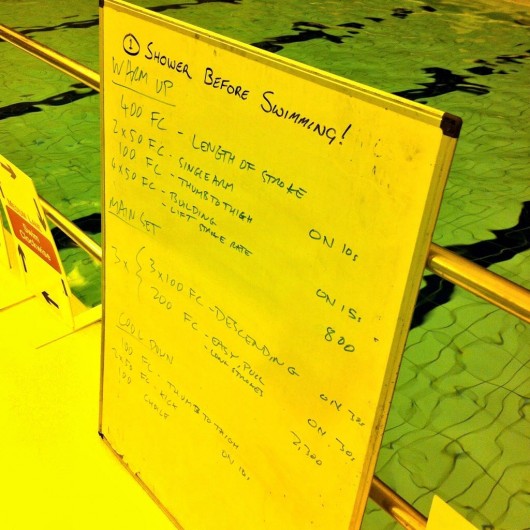 ① SHOWER BEFORE SWIMMING!
WARM UP
400 FC - LENGTH OF STROKE
2x50 FC - SINGLE ARM
100 FC - THUMB TO THIGH ON 10s
4x50 FC - BUILDING
- LIFT STROKE RATE ON 15s
800
MAIN SET
3x { 3x100 FC - DESCENDING ON 30s
200 FC - EASY, PULL ON 30s
- LONG STROKES
COOL DOWN
100 FC - THUMB TO THIGH
50 FC - KICK ON 10s
100
Swim
Clockwise